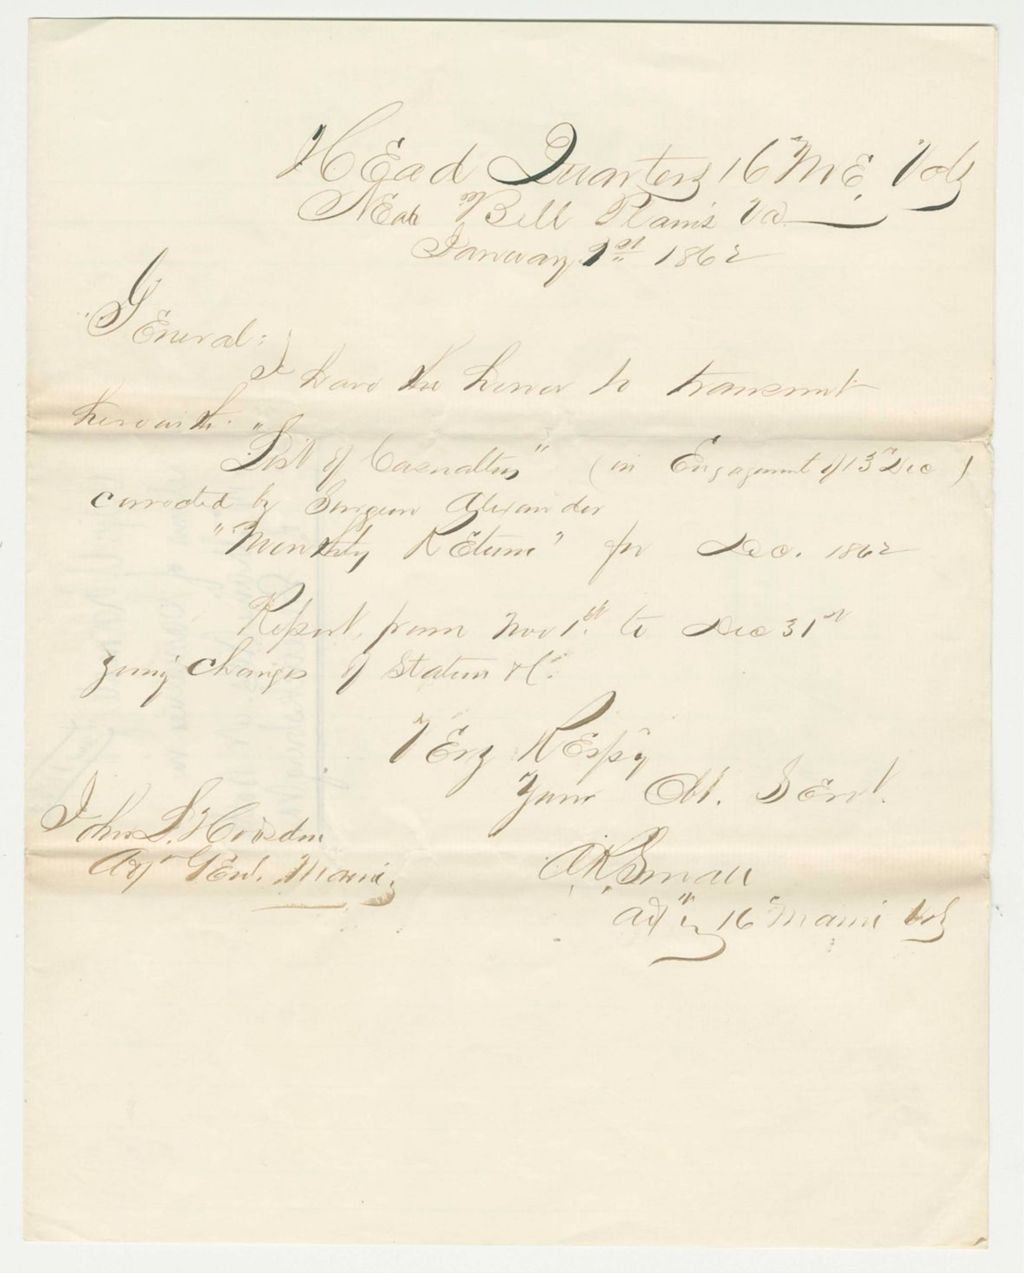 Head Quarters 16th Me. Vols
Near Bell Plains Va
January 1st 1862
General:
I have the honor to transmit
herewith.
"List of Casualties" (in Engagement of 13th Dec)
corrected by Surgeon Alexander
"Monthly Return" for Dec. 1862
Report, from Nov 1st to Dec 31st
giving changes of Station &c.
Very Resp'y
Your Obt. Servt.
John L. Hodsdon
Adjt Genl. Maine.
A. R. Small
Adjt 16th Maine Vols